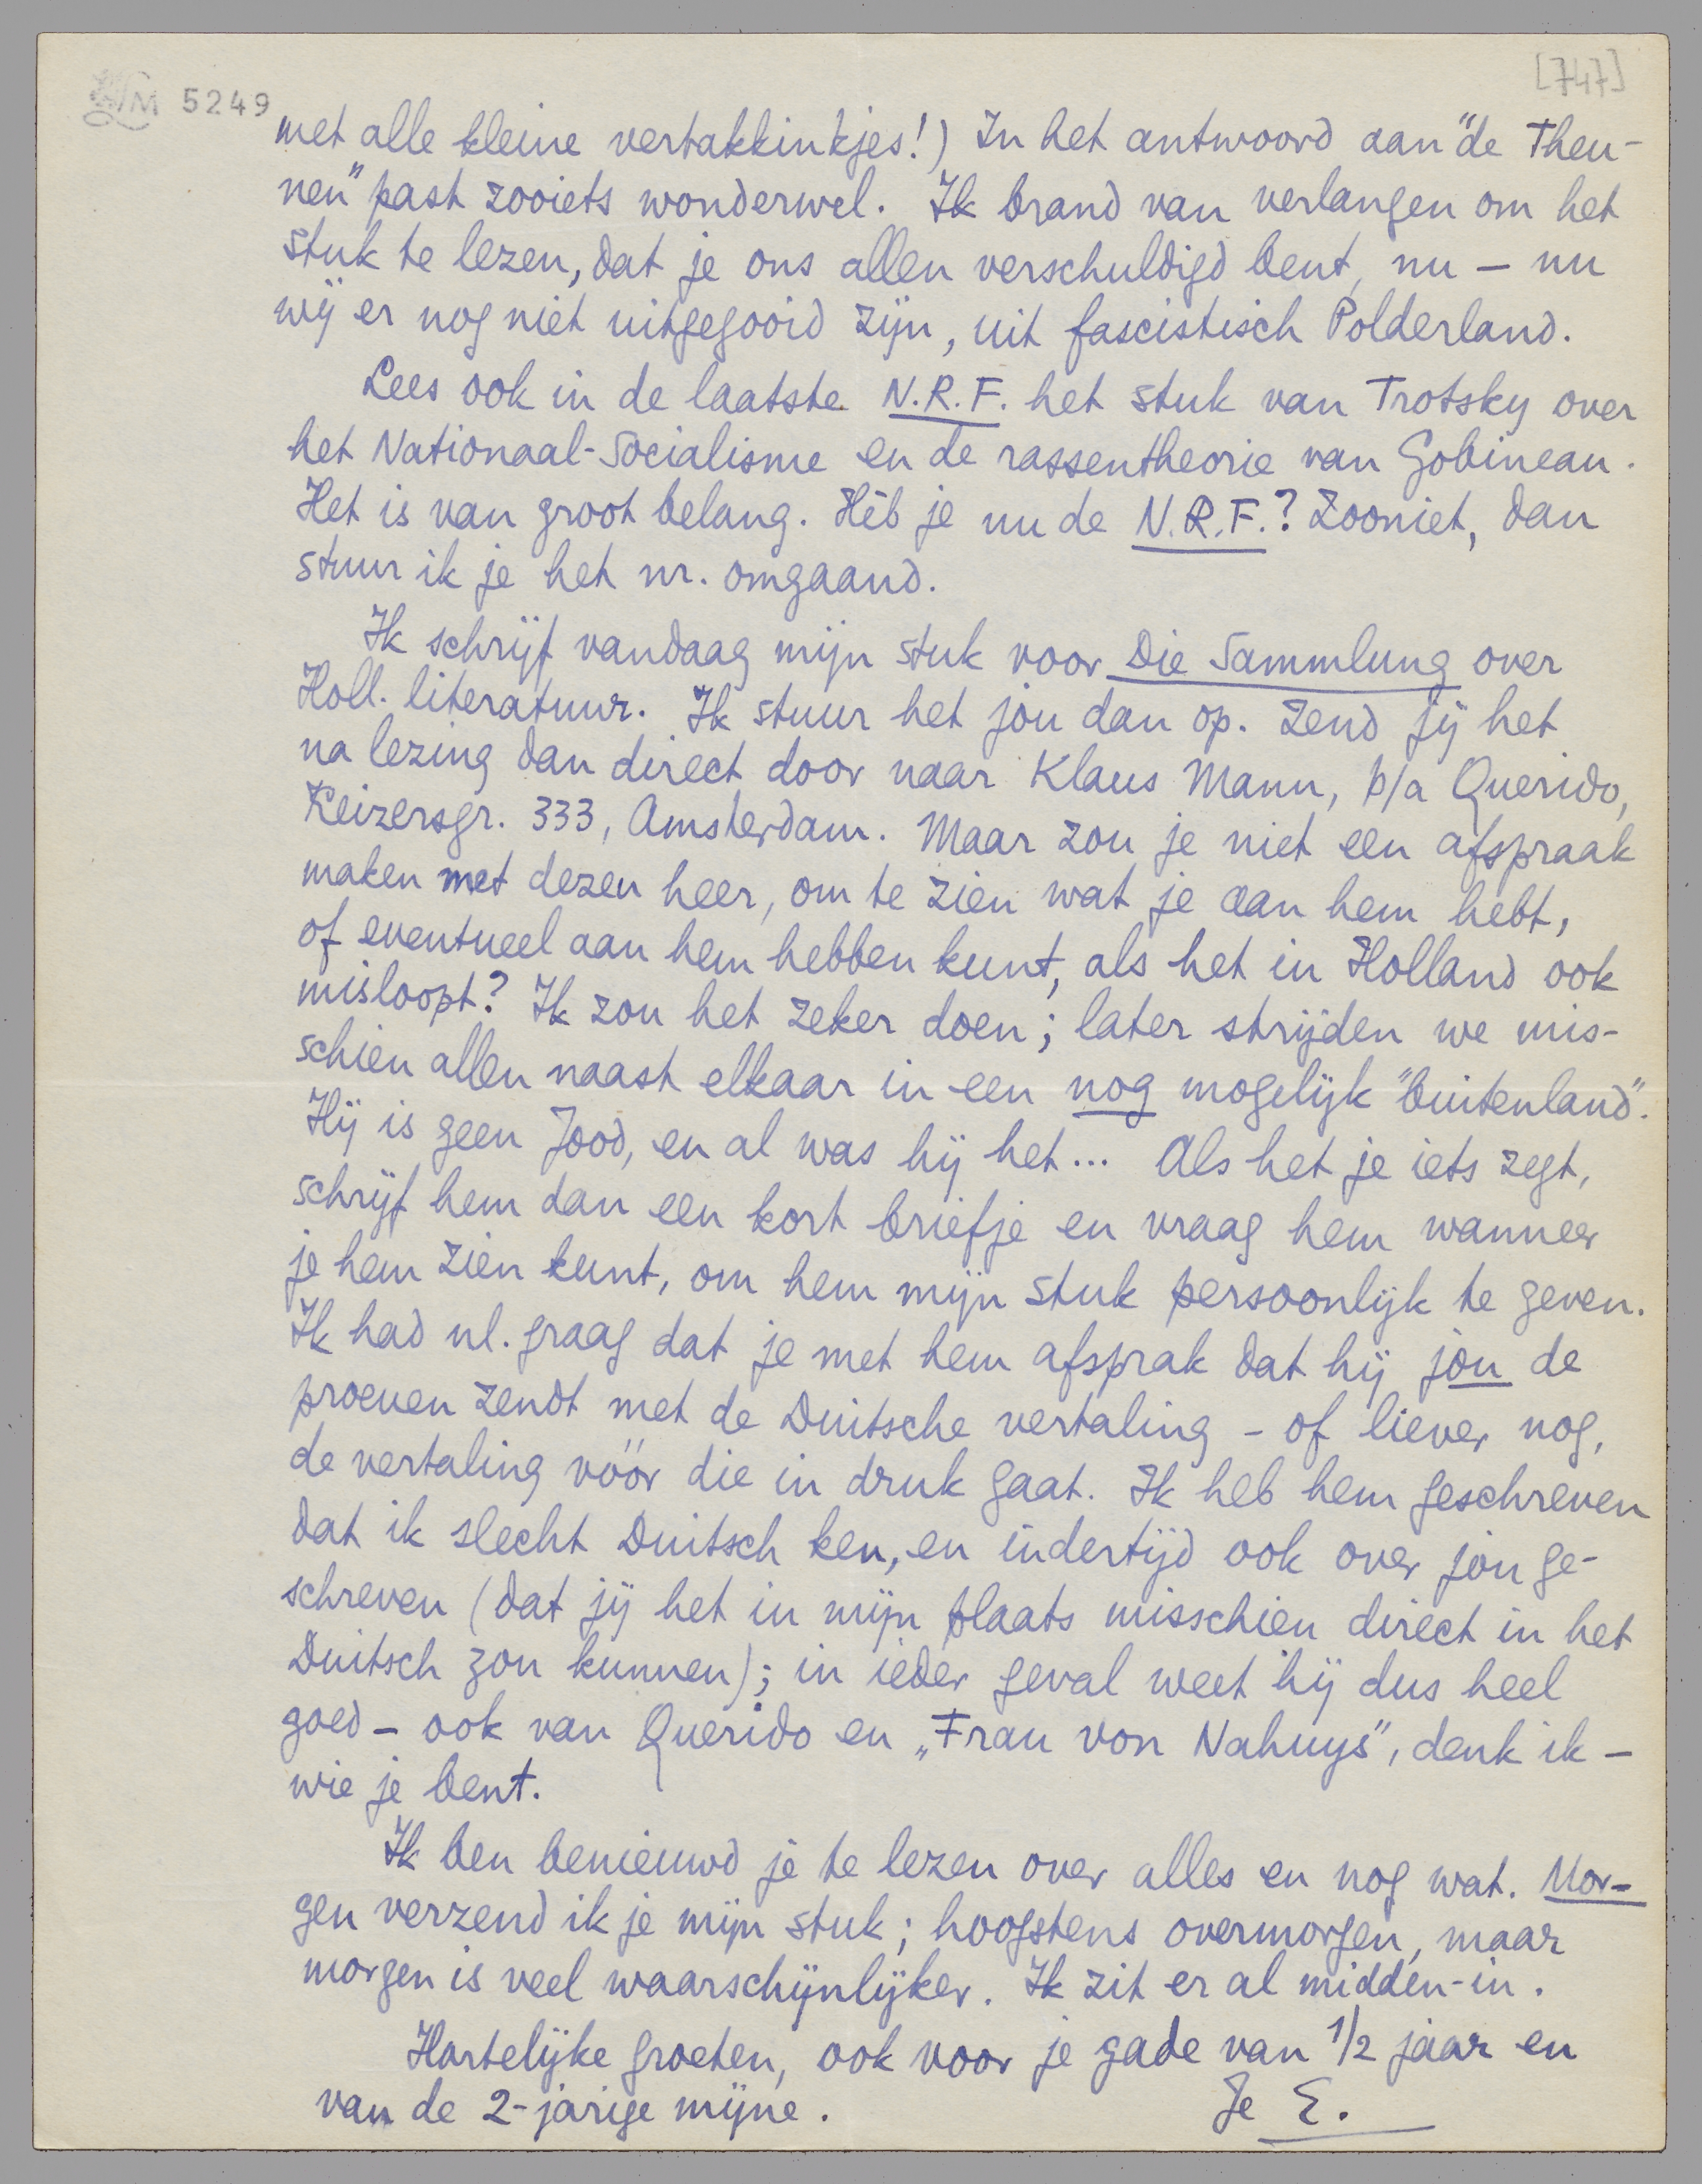 [747]
LM 5249
met alle kleine vertakkinkjes!) In het antwoord aan "de Theu-
nen" past zooiets wonderwel. Ik brand van verlangen om het
stuk te lezen, dat je ons allen verschuldigd bent, nu – nu
wij er nog niet uitgegooid zijn, uit fascistisch Polderland.
Lees ook in de laatste N.R.F. het stuk van Trotsky over
het Nationaal-Socialisme en de rassentheorie van Gobineau.
Het is van groot belang. Hèb je nu de N.R.F.? Zooniet, dan
stuur ik je het nr. omgaand.
Ik schrijf vandaag mijn stuk voor Die Sammlung over
Holl. literatuur. Ik stuur het jou dan op. Zend jij het
na lezing dan direct door naar Klaus Mann, p/a Querido,
Keizersgr. 333, Amsterdam. Maar zou je niet een afspraak
maken met dezen heer, om te zien wat je aan hem hebt,
of eventueel aan hem hebben kunt, als het in Holland ook
misloopt? Ik zou het zeker doen; later strijden we mis-
schien allen naast elkaar in een nog mogelijk "buitenland".
Hij is geen Jood, en al was hij het... Als het je iets zegt,
schrijf hem dan een kort briefje en vraag hem wanneer
je hem zien kunt, om hem mijn stuk persoonlijk te geven.
Ik had nl. graag dat je met hem afsprak dat hij jou de
proeven zendt met de Duitsche vertaling – of liever nog,
de vertaling vóór die in druk gaat. Ik heb hem geschreven
dat ik slecht Duitsch ken, en indertijd ook over jou ge-
schreven (dat jij het in mijn plaats misschien direct in het
Duitsch zou kunnen); in ieder geval weet hij dus heel
goed – ook van Querido en „Frau von Nahuys", denk ik –
wie je bent.
Ik ben benieuwd je te lezen over alles en nog wat. Mor-
gen verzend ik je mijn stuk; hoogstens overmorgen, maar
morgen is veel waarschijnlijker. Ik zit er al midden-in.
Hartelijke groeten, ook voor je gade van 1/2 jaar en
van de 2-jarige mijne.
Je E.